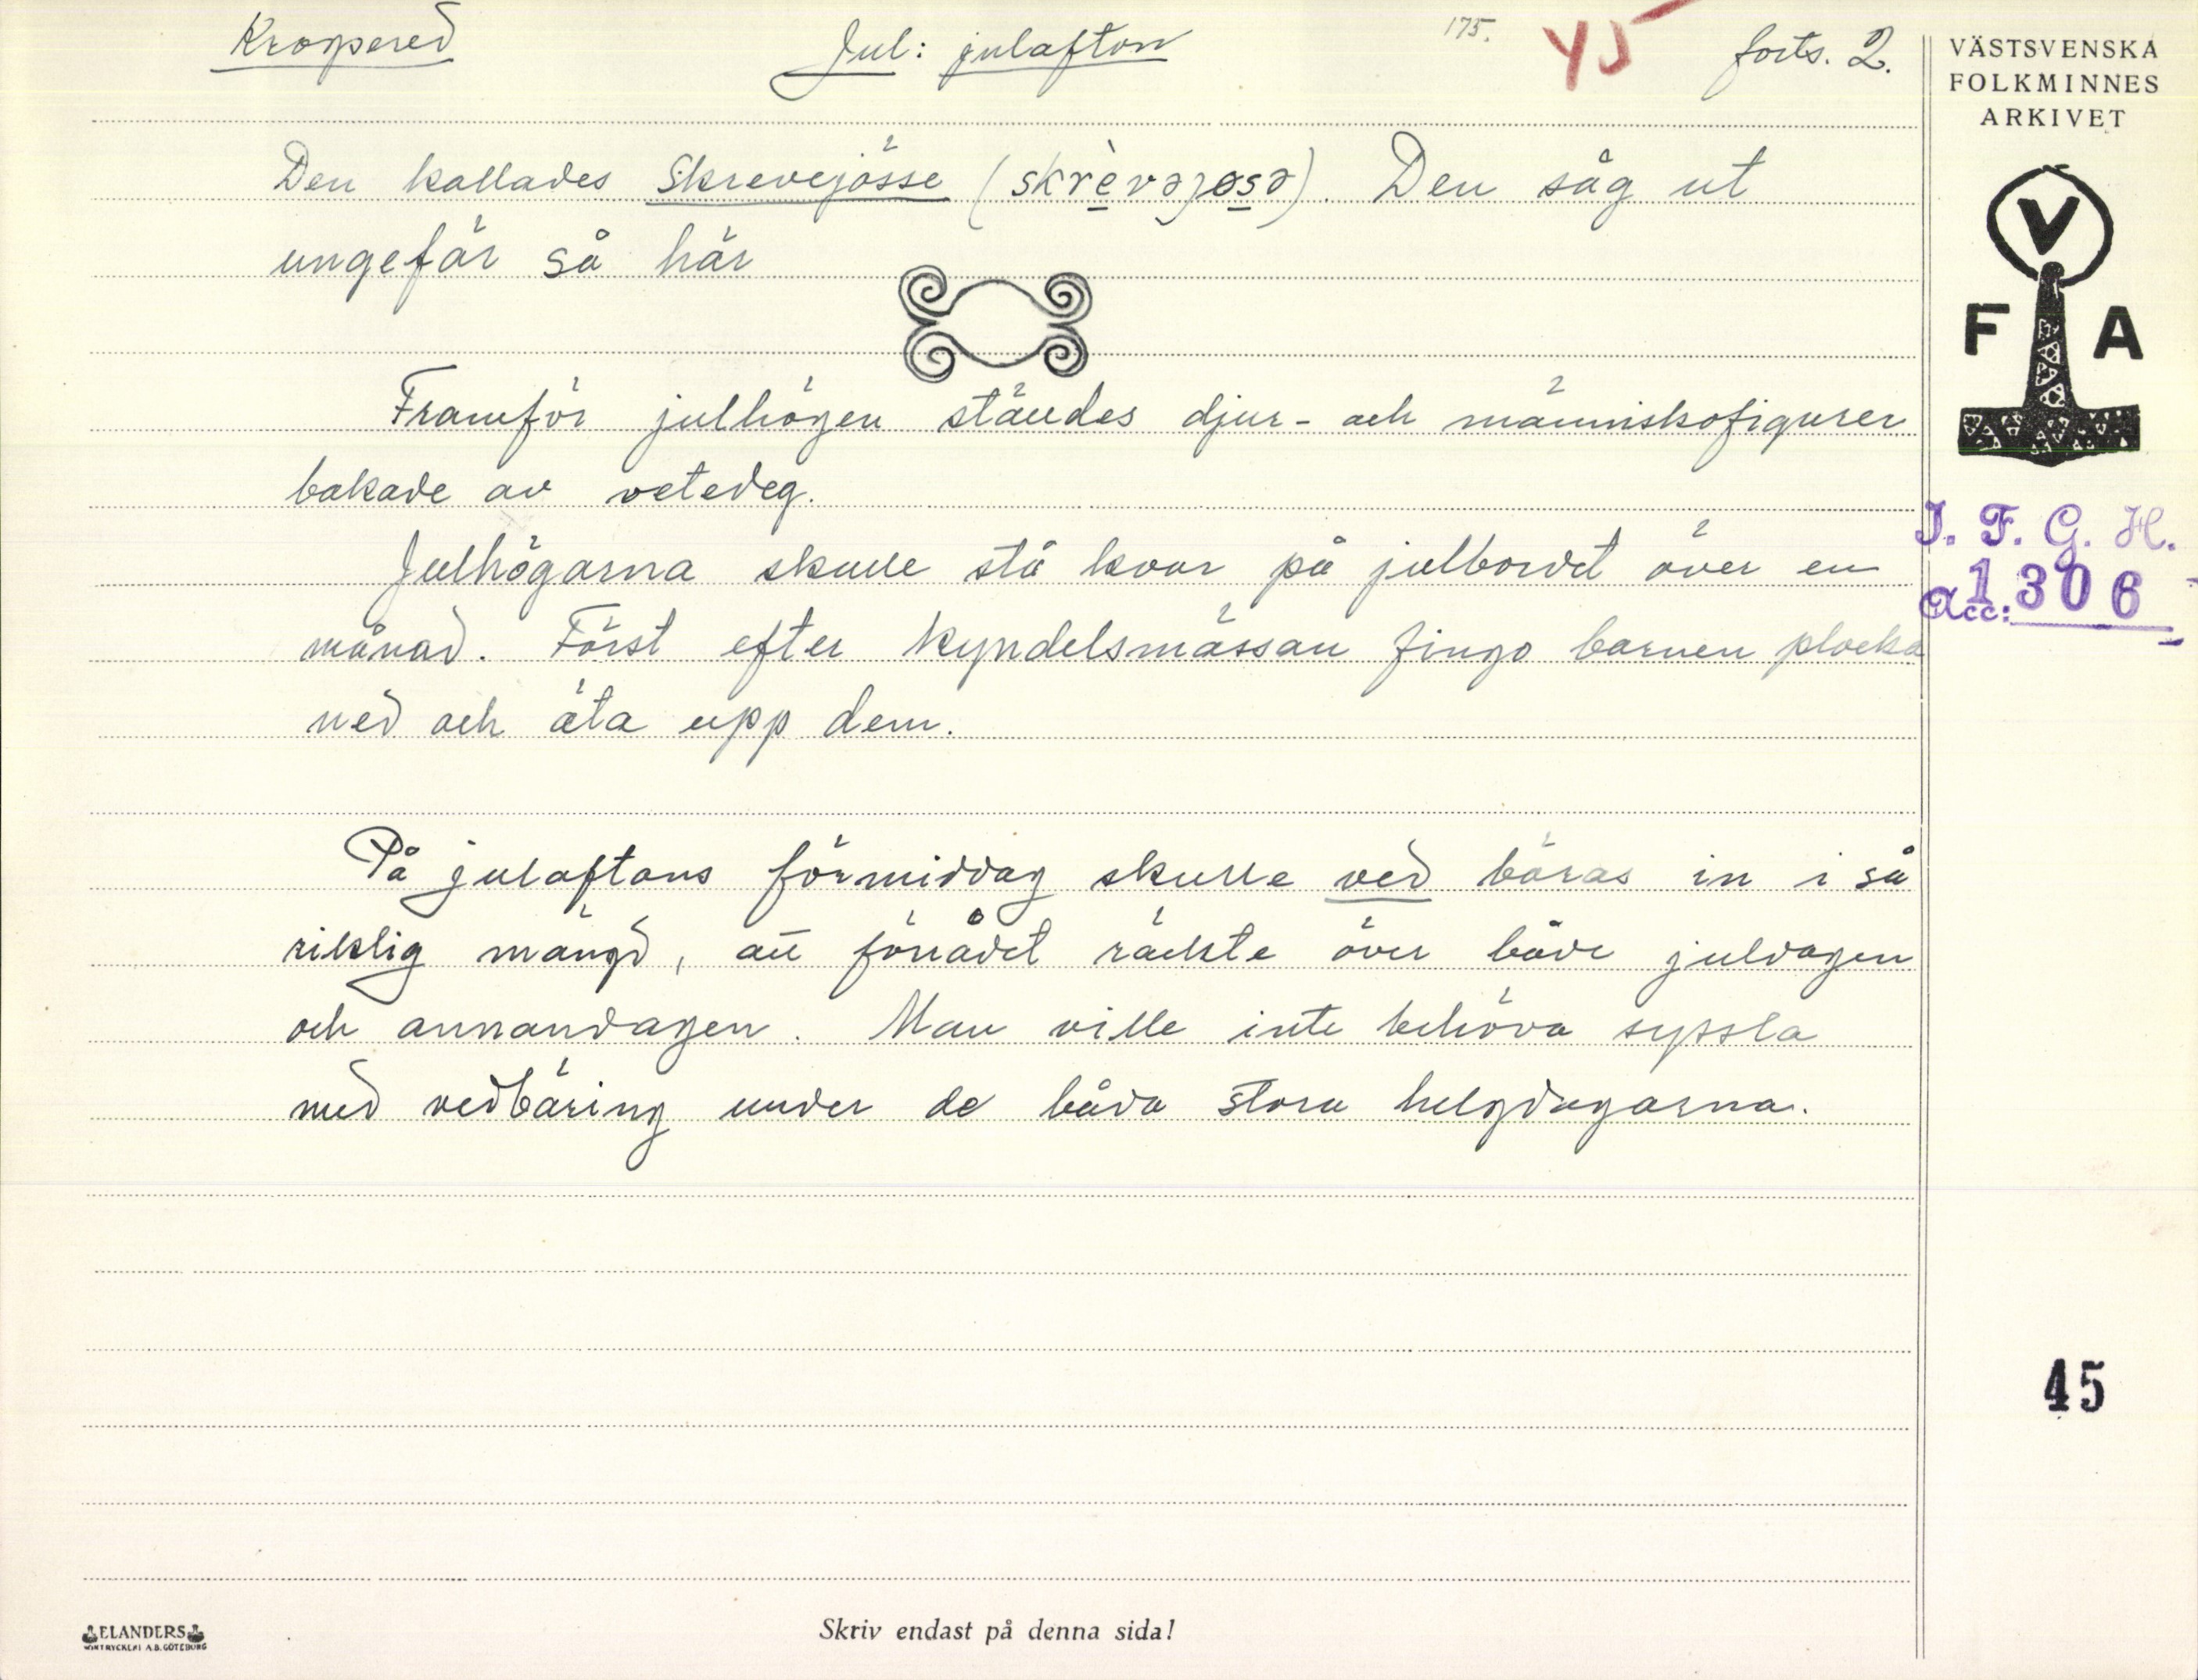 Kroppered Jul: julafton 175. 45 forts. 2.
VÄSTSVENSKA
FOLKMINNES
ARKIVET
Den kallades Skrevejösse (skrèvəjøsə). Den såg ut
ungefär så här
V
F A
Framför julhögen ställdes djur- och människofigurer
bakade av vetedeg.
I. F. G. H.
Acc: 1306
Julhögarna skulle stå kvar på julbordet över en
månad. Först efter kyndelsmässan fingo barnen plocka
ned och äta upp dem.
På julaftons förmiddag skulle ved bäras in i så
riklig mängd, att förrådet räckte över både juldagen
och annandagen. Man ville inte behöva syssla
med vedbäring under de båda stora helgdagarna.
45
ELANDERS
BOKTRYCKERI A.B. GÖTEBORG
Skriv endast på denna sida!